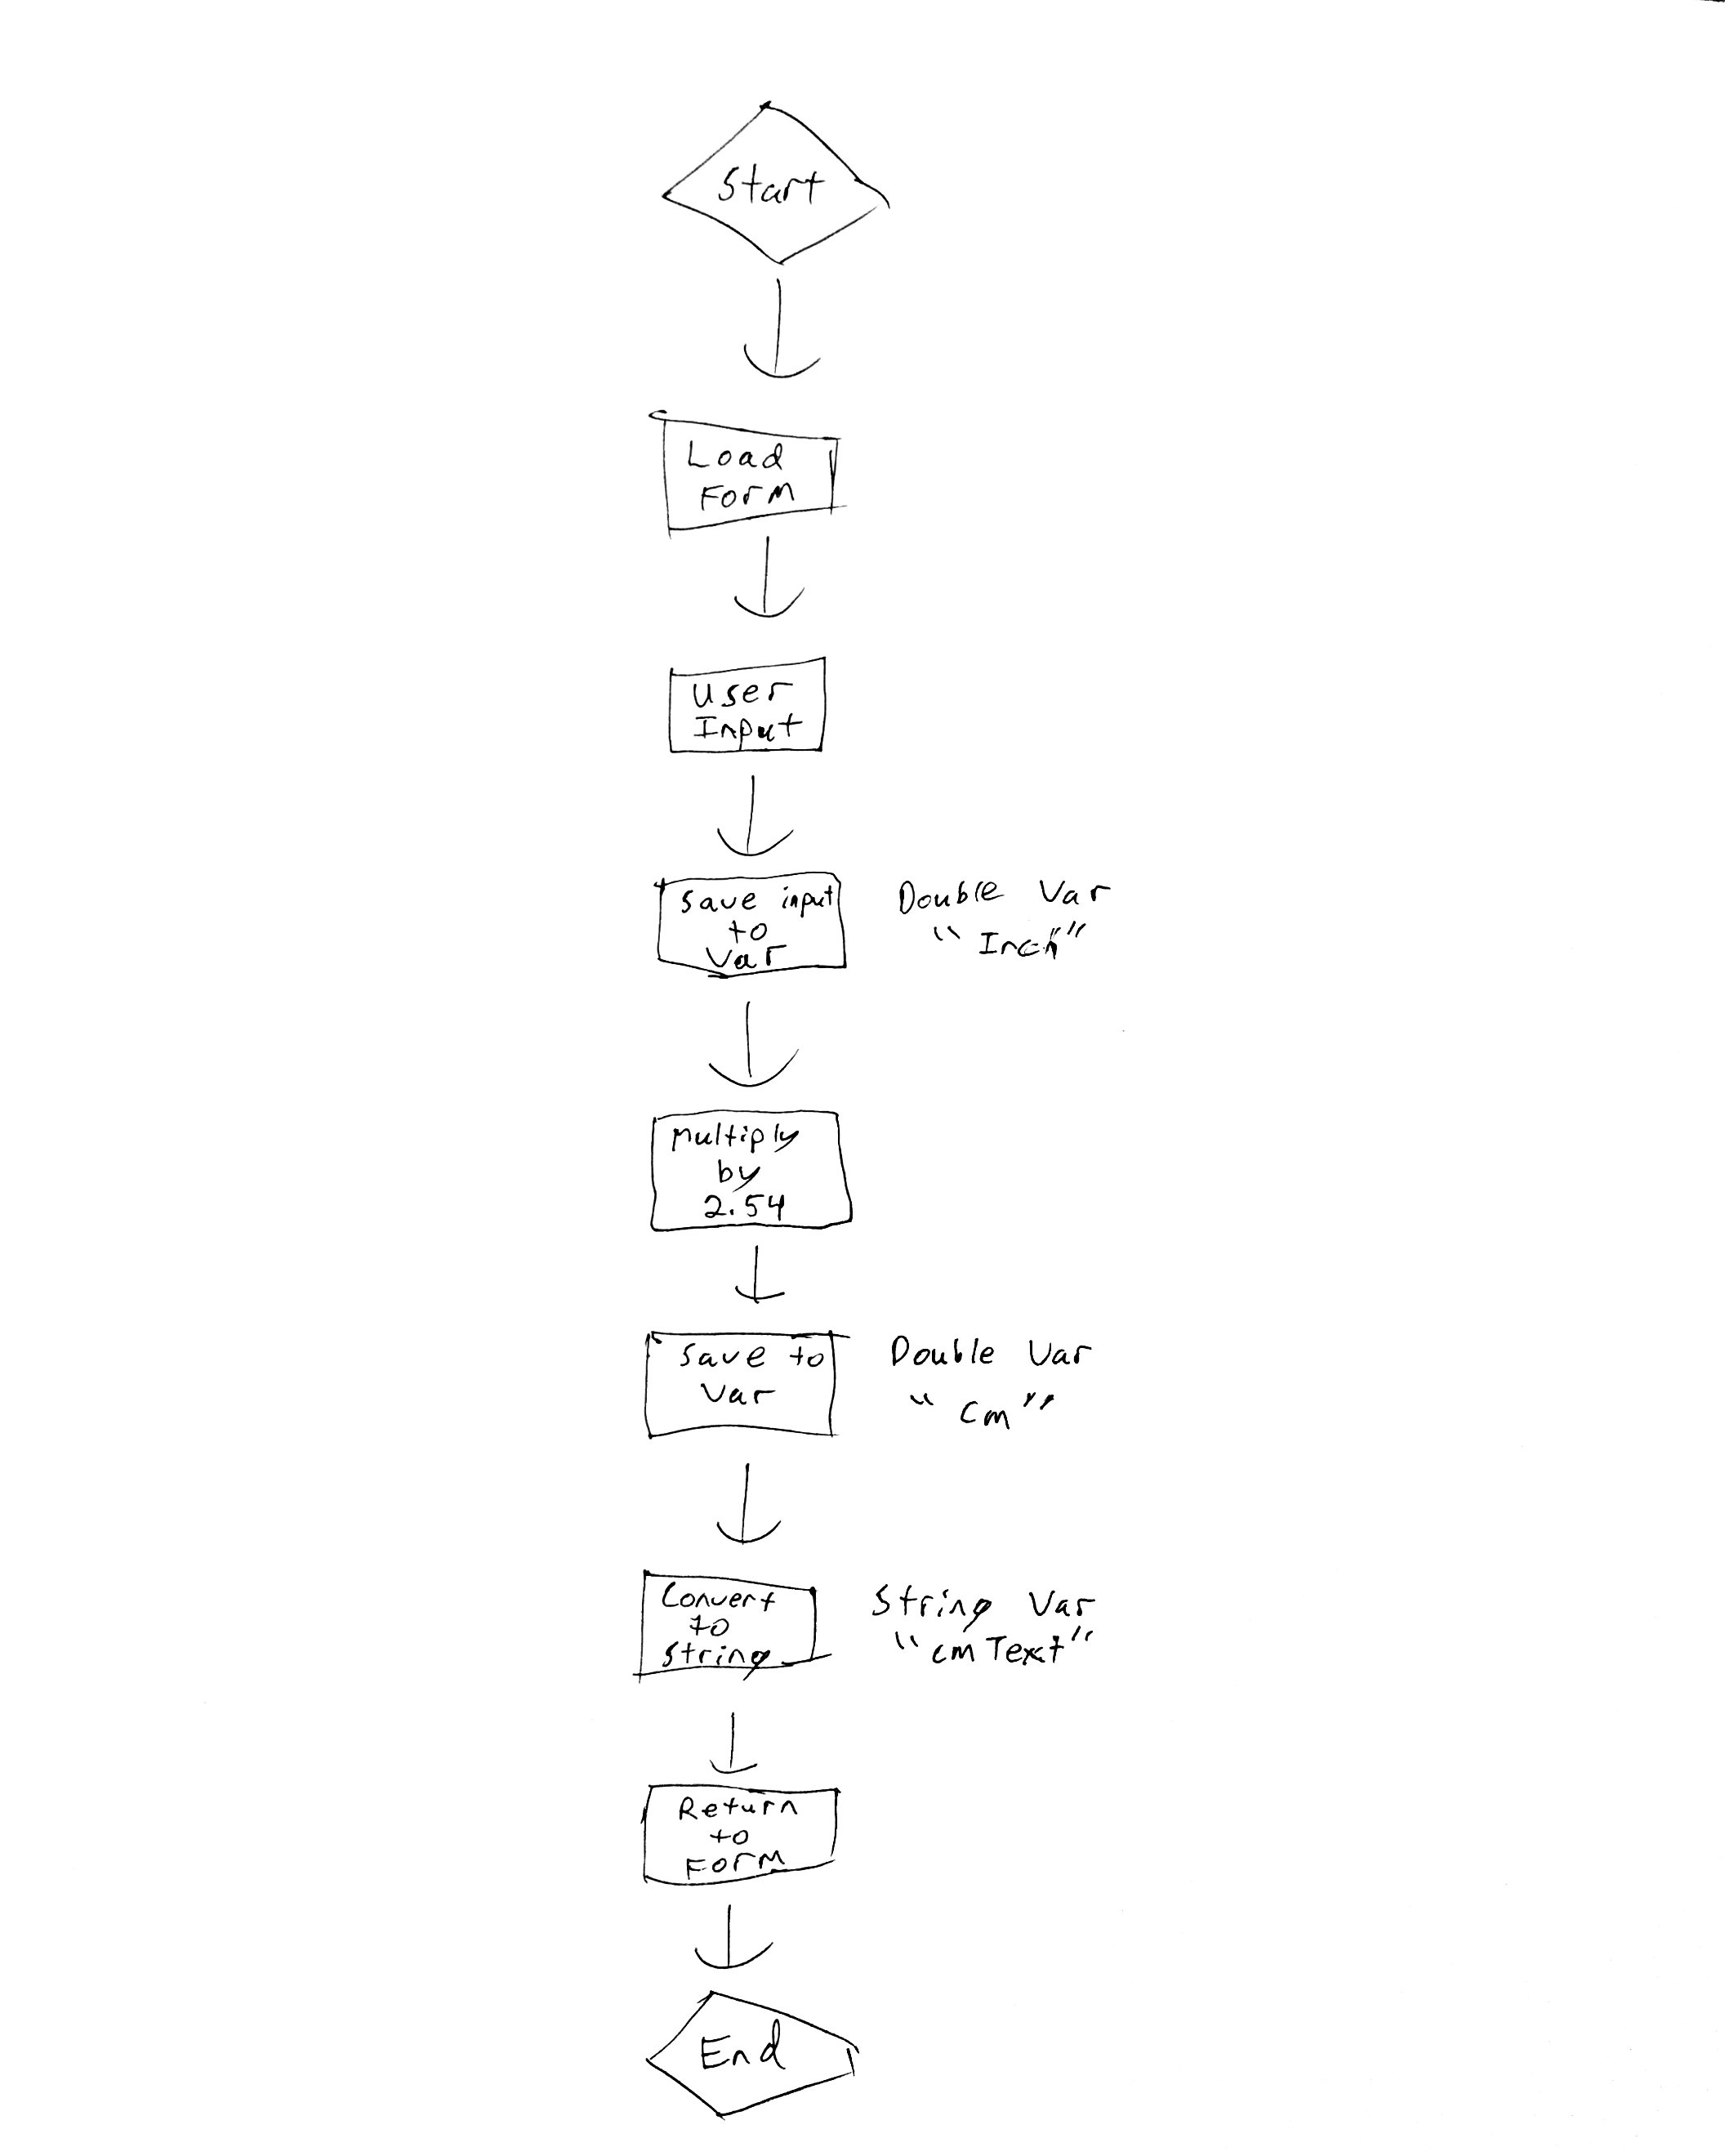 Start
Load
Form
User
Input
Save input
to
Var
Double Var
"Inch"
Multiply
by
2.54
Save to
Var
Double Var
"cm"
Convert
to
String
String Var
"cmText"
Return
to
Form
End